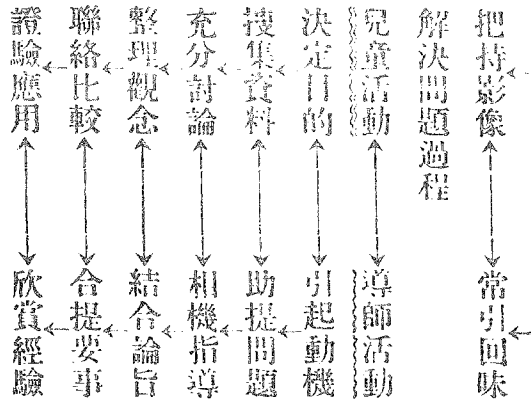 把持影像
常引回味
解決問題過程
兒童活動
導師活動
決定目的
引起動機
搜集資料
助提問題
充分討論
相機指導
整理觀念
結合論旨
聯絡比較
合提要事
證驗應用
欣賞經驗